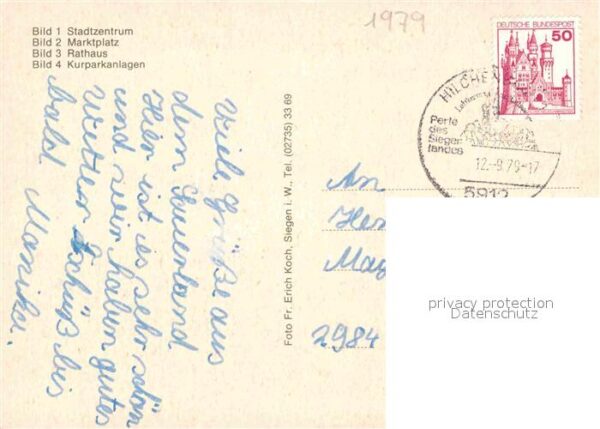 Bild 1 Stadtzentrum
Bild 2 Marktplatz
Bild 3 Rathaus
Bild 4 Kurparkanlagen
1979
DEUTSCHE BUNDESPOST
50
HILCHEN
Perle
des
Sieger-
landes
12.-9.79-17
5912
Viele Grüße aus
dem Sauerland
Hier ist es sehr schön
und wir haben gutes
Wetter Tschüß bis
bald Monika.
Foto Fr. Erich Koch, Siegen i. W., Tel. (02735) 33 69
An
2984
privacy protection
Datenschutz